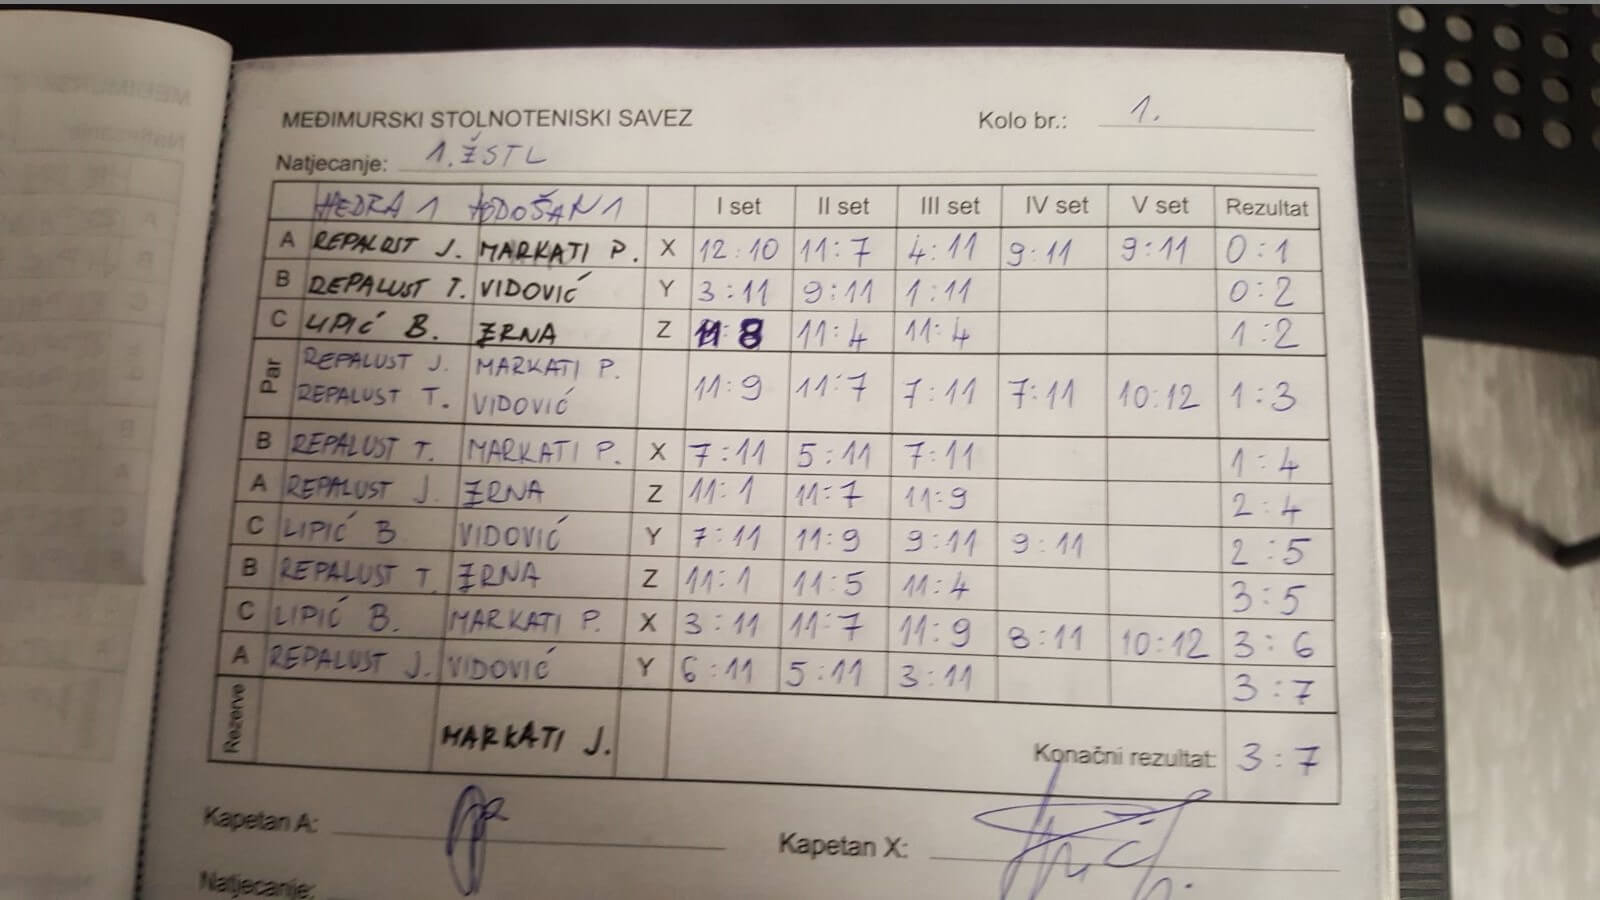 MEĐIMURSKI STOLNOTENISKI SAVEZ Kolo br.: 1.
Natjecanje: 1. ŽSTL
HEDRA 1 HODOŠAN 1 I set II set III set IV set V set Rezultat
A REPALUST J. MARKATI P. X 12:10 11:7 4:11 9:11 9:11 0:1
B REPALUST T. VIDOVIĆ Y 3:11 9:11 1:11 0:2
C LIPIĆ B. ZRNA Z 11:8 11:4 11:4 1:2
Par REPALUST J. MARKATI P.
REPALUST T. VIDOVIĆ 11:9 11:7 7:11 7:11 10:12 1:3
B REPALUST T. MARKATI P. X 7:11 5:11 7:11 1:4
A REPALUST J. ZRNA Z 11:1 11:7 11:9 2:4
C LIPIĆ B VIDOVIĆ Y 7:11 11:9 9:11 9:11 2:5
B REPALUST T. ZRNA Z 11:1 11:5 11:4 3:5
C LIPIĆ B. MARKATI P. X 3:11 11:7 11:9 8:11 10:12 3:6
A REPALUST J. VIDOVIĆ Y 6:11 5:11 3:11 3:7
Rezerve MARKATI J. Konačni rezultat: 3:7
Kapetan A: Kapetan X:
Natjecanje: